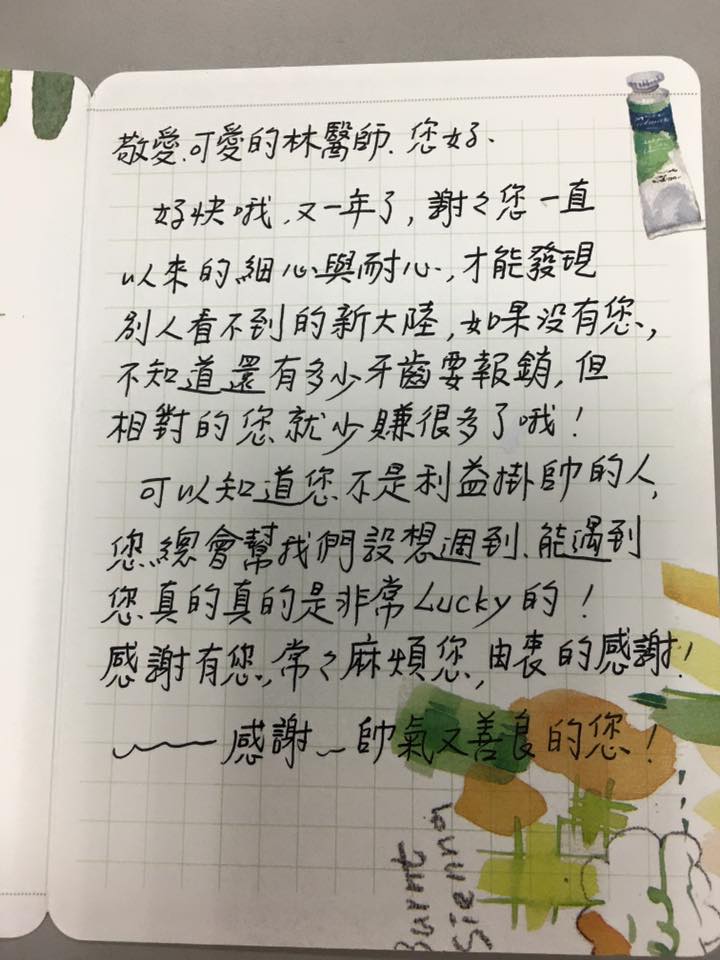 敬愛、可愛的林醫師、您好、
好快哦,又一年了,謝々您一直
以來的細心與耐心,才能發現
別人看不到的新大陸,如果沒有您,
不知道還有多少牙齒要報銷,但
相對的您就少賺很多了哦!
可以知道您不是利益掛帥的人,
您總會幫我們設想週到、能遇到
您真的真的是非常Lucky的!
感謝有您,常々麻煩您,由衷的感謝!
感謝 帥氣又善良的您!
Burnt
Sienna